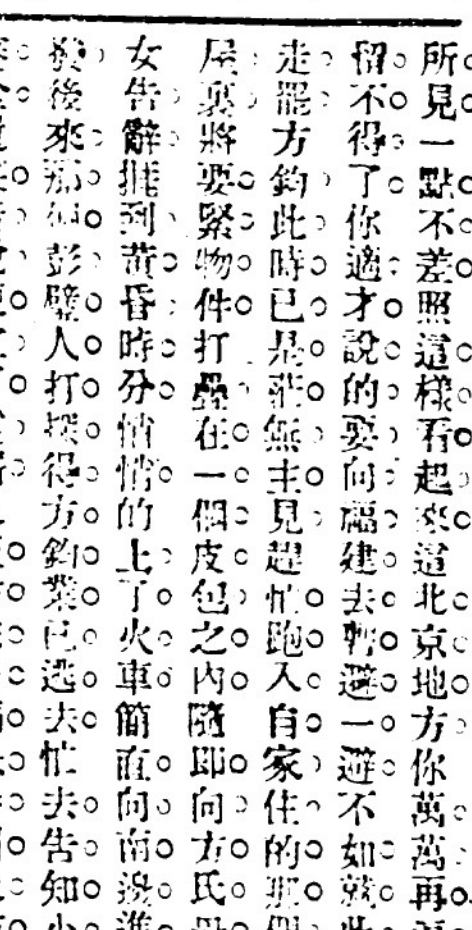 所見一點不差照這樣看起來這北京地方你萬萬再
留不得了你適才說的要向福建去暫避一避不如就此
走罷方鈞此時已是茫無主見趕忙跑入自家住的那個
屋裏將要緊物件打疊在一個皮包之內隨即向方氏母
女告辭捱到黃昏時分悄悄的上了火車簡直向南邊進
發後來那個彭壁人打探得方鈞業已逃去忙去告知小